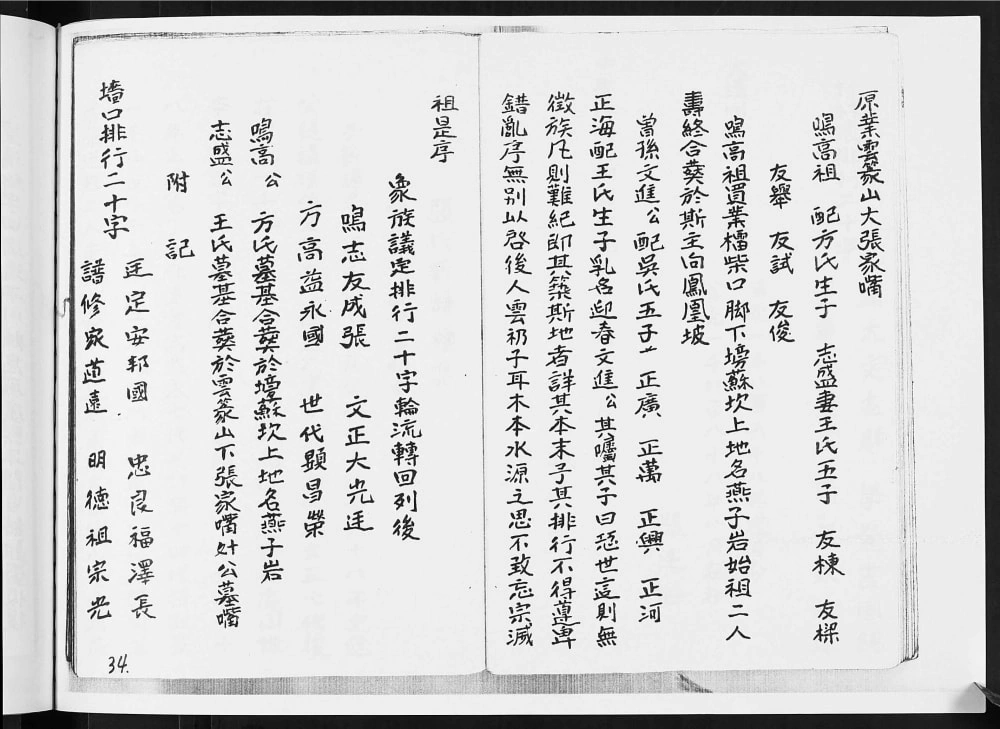 原業雲篆山大張家嘴
鳴高祖 配方氏生子 志盛妻王氏五子 友棟 友樑
友舉 友試 友俊
鳴高祖買業檑柴口脚下塝蘇坎上地名燕子岩始祖二人
壽終合葬於斯主向鳳凰坡
曾孫文進公配吳氏五子 正廣 正萬 正興 正河
正海配王氏生子乳名迎春文進公其囑其子曰恐世遠則無
徵族凡則難紀郎其築斯地者詳其本末予其排行不得遵卑
錯亂序無別以啓後人雲礽子耳木本水源之思不致忘宗滅
祖是序
象族議定排行二十字輪流轉回列後
鳴志友成張 文正大光廷
方高益永國 世代顯昌榮
鳴高公 方氏墓基合葬於塝蘇坎上地名燕子岩
志盛公 王氏墓基合葬於雲篆山下張家嘴 公墓嘴
附記
墻口排行二十字
廷定安邦國 忠良福澤長
譜修家道遠 明德祖宗光
34.